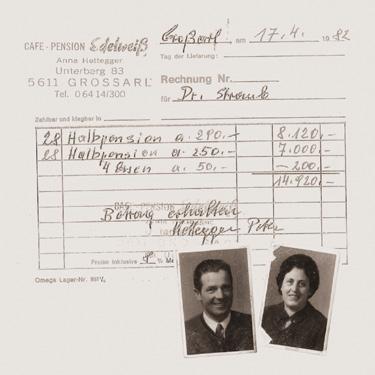 CAFE - PENSION Edelweiß
Anna Hettegger
Unterberg 83
5611 GROSSARL
Tel. 0 64 14/300
Großarl, am 17.4. 1982
Tag der Lieferung:
Rechnung Nr.
für Dr.
Zahlbar und klagbar in
28 Halbpension a. 290.- 8.120.-
28 Halbpension a. 250.- 7.000.-
4 Essen a. 50.- -200.-
14.920.-
Betrag erhalten
Hettegger Peter
Preise inklusive 8 % M
Omega Lager-Nr.